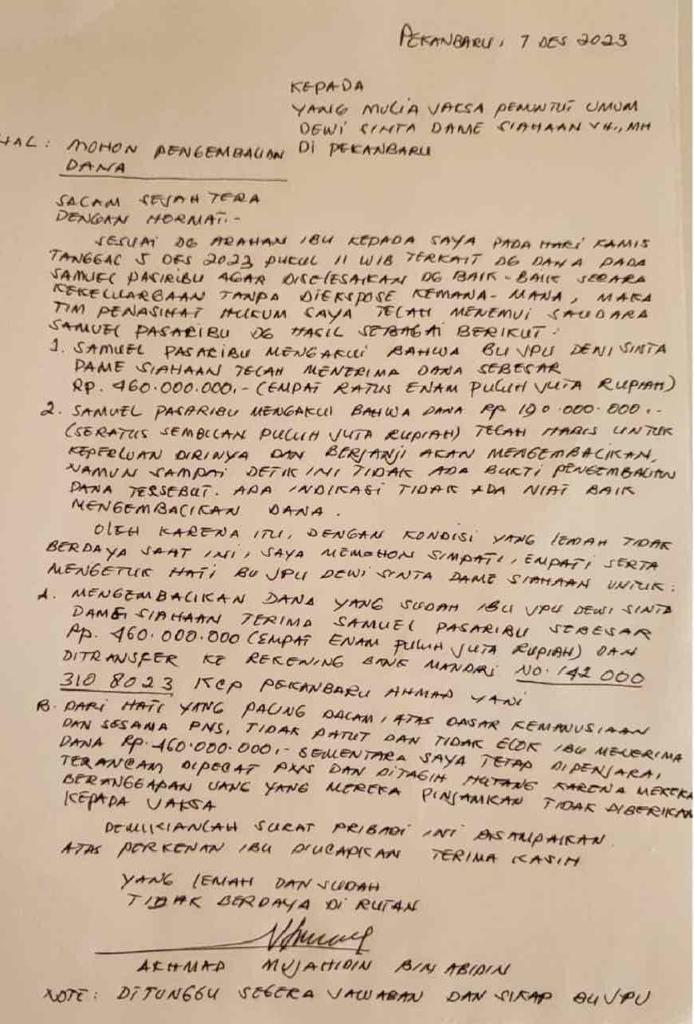 PEKANBARU, 7 DES 2023
KEPADA
YANG MULIA JAKSA PENUNTUT UMUM
DEWI SINTA DAME SIAHAAN SH., MH
HAL : MOHON PENGEMBALIAN DI PEKANBARU
DANA
SALAM SEJAHTERA
DENGAN HORMAT.-
SESUAI DG ARAHAN IBU KEPADA SAYA PADA HARI KAMIS
TANGGAL 5 DES 2023 PUKUL 11 WIB TERKAIT DG DANA PADA
SAMUEL PASIRIBU AGAR DISELESAIKAN DG BAIK-BAIK SECARA
KEKELUARGAAN TANPA DIEKSPOSE KEMANA-MANA, MAKA
TIM PENASIHAT HUKUM SAYA TELAH MENEMUI SAUDARA
SAMUEL PASARIBU DG HASIL SEBAGAI BERIKUT :
1. SAMUEL PASARIBU MENGAKUI BAHWA BU JPU DEWI SINTA
DAME SIAHAAN TELAH MENERIMA DANA SEBESAR
RP. 460.000.000,- (EMPAT RATUS ENAM PULUH JUTA RUPIAH)
2. SAMUEL PASARIBU MENGAKUI BAHWA DANA RP 190.000.000.-
(SERATUS SEMBILAN PULUH JUTA RUPIAH) TELAH HABIS UNTUK
KEPERLUAN DIRINYA DAN BERJANJI AKAN MENGEMBALIKAN,
NAMUN SAMPAI DETIK INI TIDAK ADA BUKTI PENGEMBALIAN
DANA TERSEBUT. ADA INDIKASI TIDAK ADA NIAT BAIK
MENGEMBALIKAN DANA.
OLEH KARENA ITU, DENGAN KONDISI YANG LEMAH TIDAK
BERDAYA SAAT INI, SAYA MEMOHON SIMPATI, EMPATI SERTA
MENGETUK HATI BU JPU DEWI SINTA DAME SIAHAAN UNTUK :
A. MENGEMBALIKAN DANA YANG SUDAH IBU JPU DEWI SINTA
DAME SIAHAAN TERIMA SAMUEL PASARIBU SEBESAR
RP. 460.000.000 (EMPAT ENAM PULUH JUTA RUPIAH) DAN
DITRANSFER KE REKENING BANK MANDIRI NO. 142 000
310 8023 KCP PEKANBARU AHMAD YANI
B. DARI HATI YANG PALING DALAM, ATAS DASAR KEMANUSIAAN
DAN SESAMA PNS, TIDAK PATUT DAN TIDAK ELOK IBU MENERIMA
DANA RP. 460.000.000,- SEMENTARA SAYA TETAP DIPENJARA,
TERANCAM DIPECAT PNS DAN DITAGIH HUTANG KARENA MEREKA
BERANGGAPAN UANG YANG MEREKA PINJAMKAN TIDAK DIBERIKAN
KEPADA JAKSA
DEMIKIANLAH SURAT PRIBADI INI DISAMPAIKAN
ATAS PERKENAN IBU DIUCAPKAN TERIMA KASIH
YANG LEMAH DAN SUDAH
TIDAK BERDAYA DI RUTAN
AKHMAD MUJAHIDIN BIN ABIDIN
NOTE : DITUNGGU SEGERA JAWABAN DAN SIKAP BU JPU